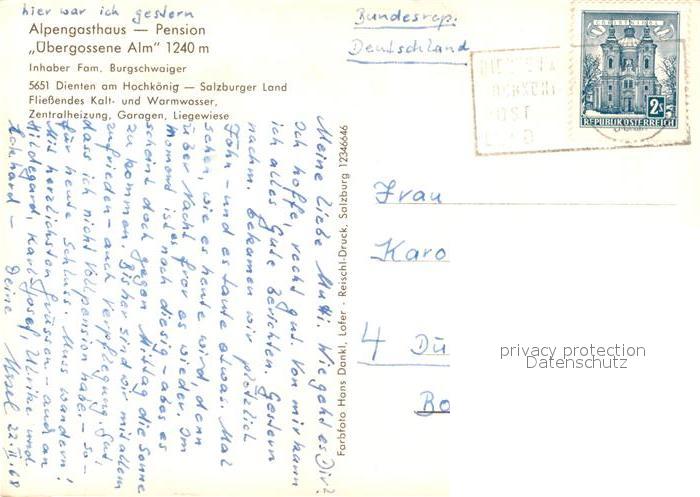 hier war ich gestern
Alpengasthaus — Pension
„Übergossene Alm" 1240 m
Inhaber Fam. Burgschwaiger
5651 Dienten am Hochkönig — Salzburger Land
Fließendes Kalt- und Warmwasser,
Zentralheizung, Garagen, Liegewiese
Meine liebe Mutti. Wie geht es Dir?
Ich hoffe, recht gut. Von mir kann
ich alles Gute berichten. Gestern
nachm. bekamen wir plötzlich
Föhn - und es taute etwas. Mal
sehen, wie es heute wird, denn
über Nacht fror es wieder. Im
Moment ist es noch diesig - aber es
scheint doch gegen Mittag die Sonne
zu kommen. Bisher sind wir mit allem
zufrieden - auch Verpflegung. Gut,
dass ich nicht Vollpension habe. - So -
für heute Schluss. Muss wandern!
Mit herzlichsten Grüssen - auch an
Hildegard, Karl-Josef, Ulrike und
Eckhard - Deine
22.II.68
Farbfoto Hans Dankl, Lofer · Reischl-Druck, Salzburg 12346646
Bundesrep.
Deutschland
CHRISTKINDL
2s
REPUBLIK ÖSTERREICH
Frau
Karo
4 Du
Bo
privacy protection
Datenschutz